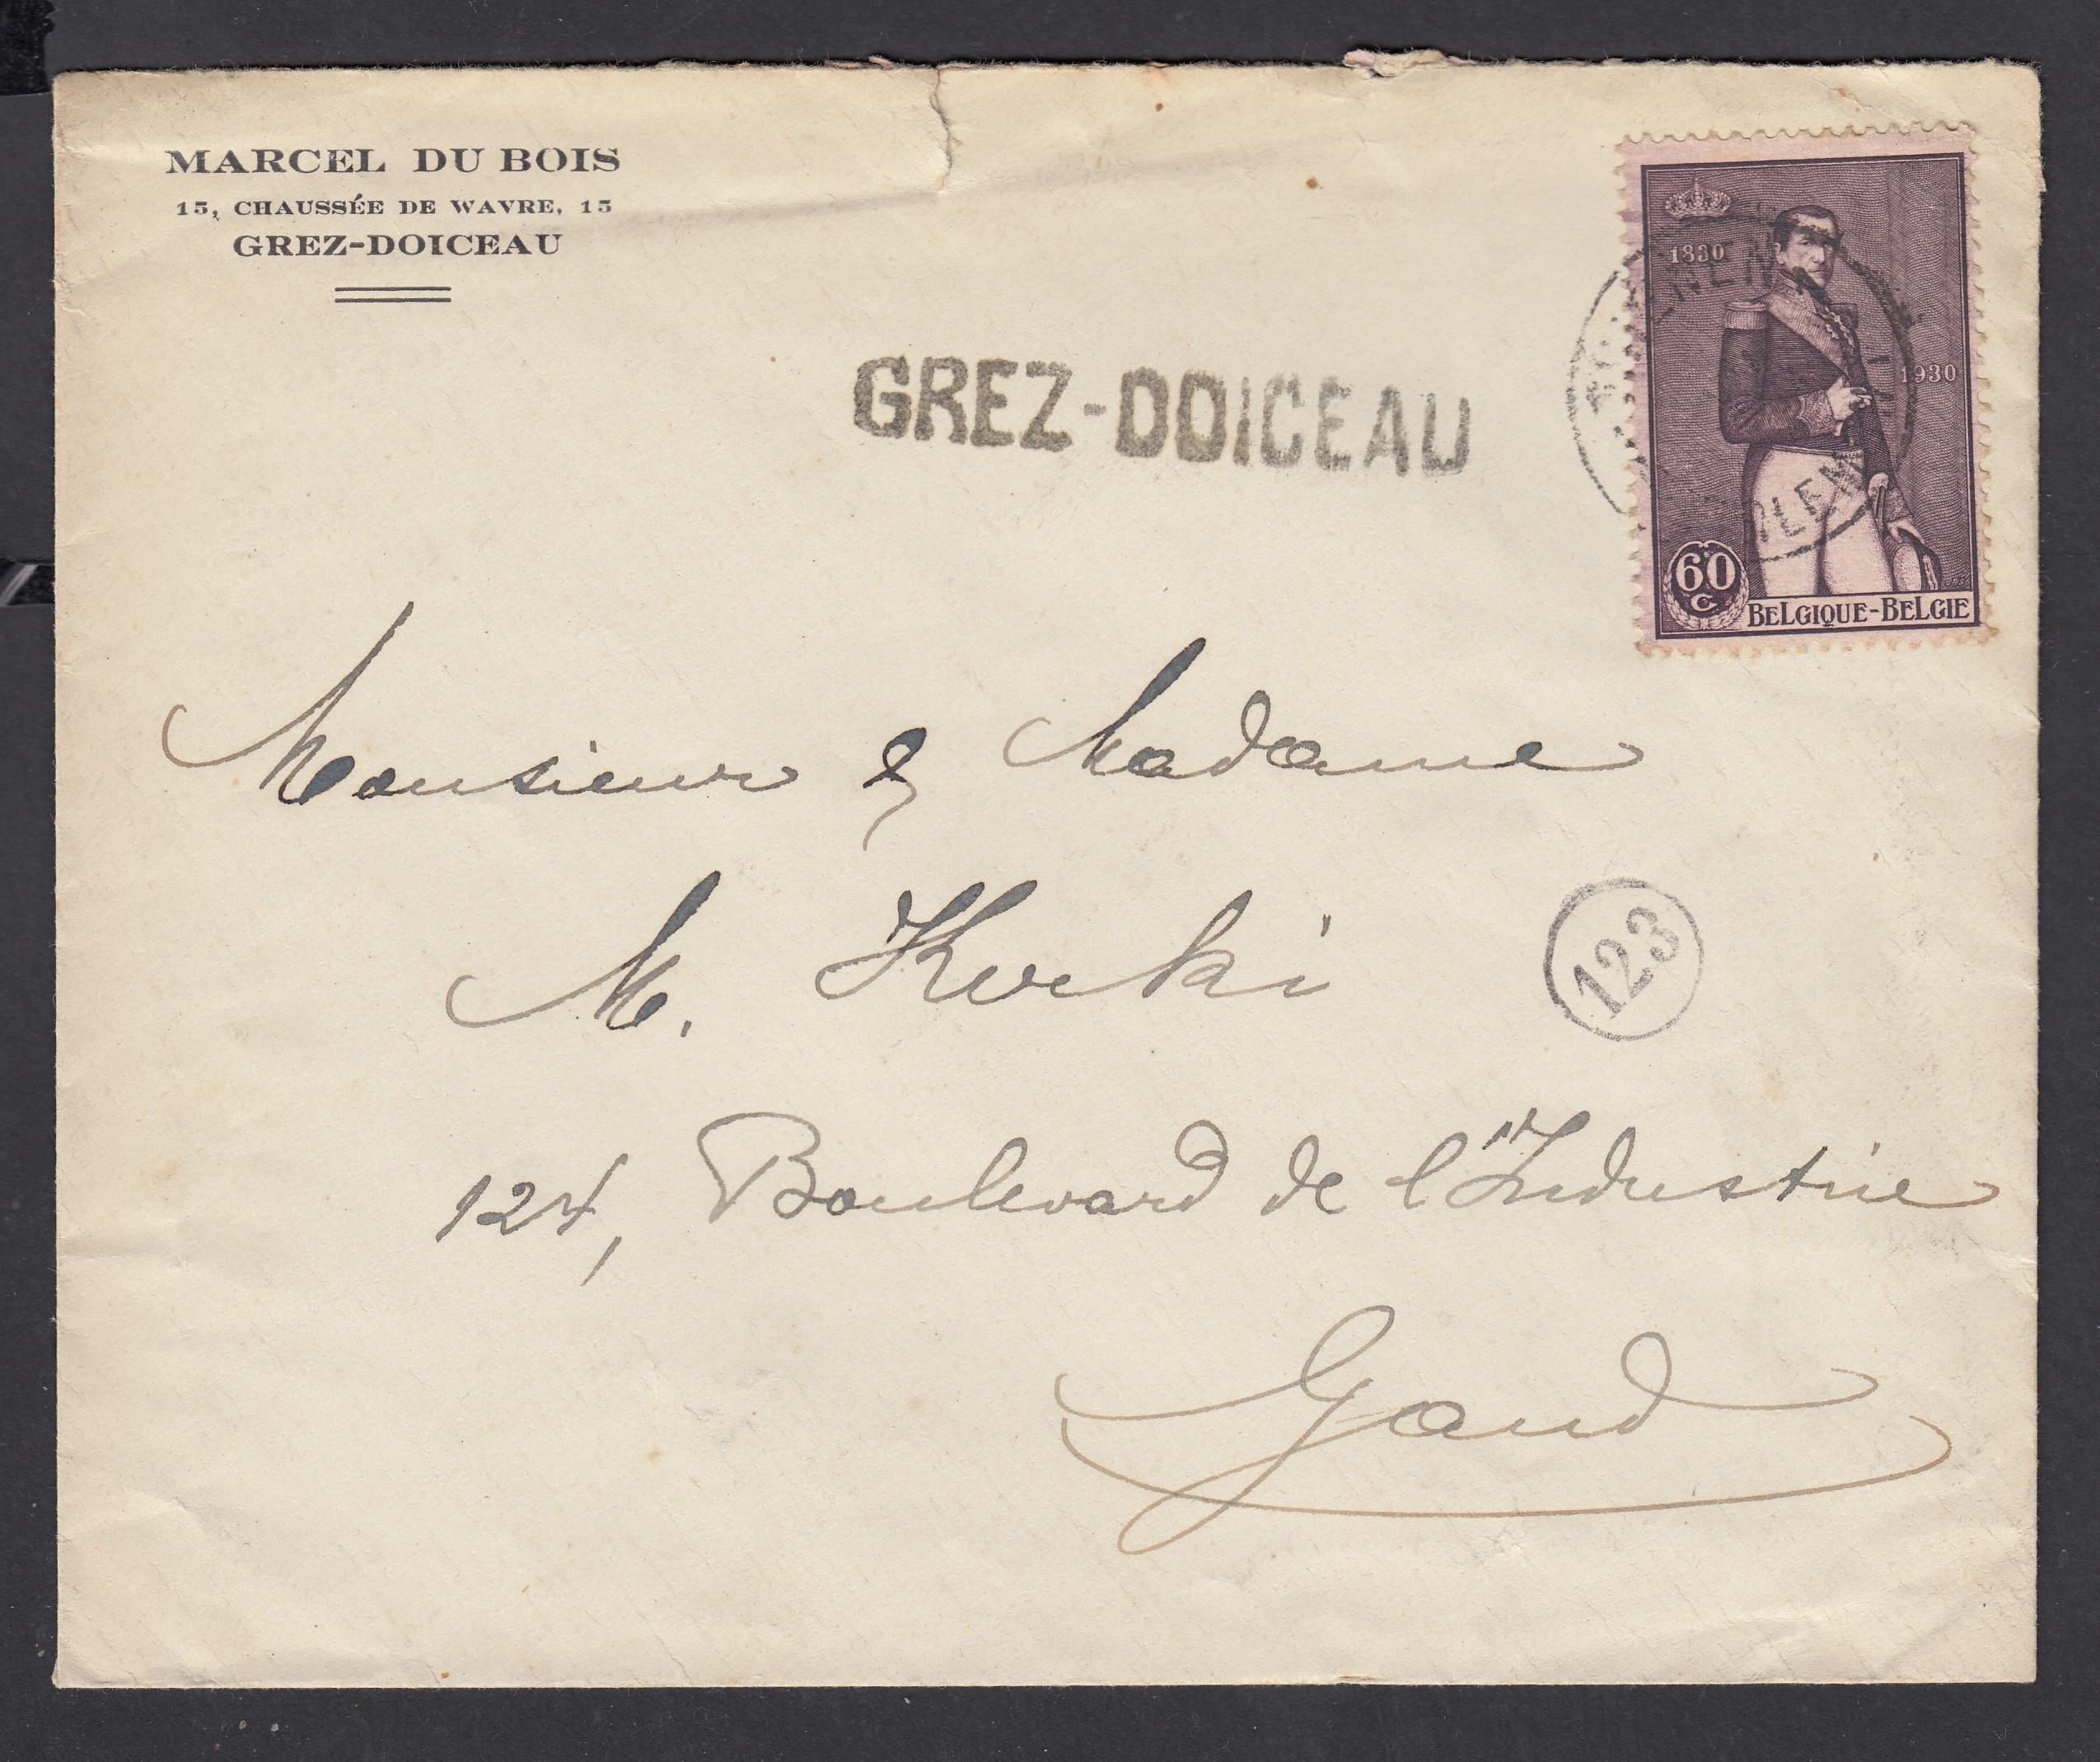 MARCEL DU BOIS
15, CHAUSSÉE DE WAVRE, 15
GREZ-DOICEAU
GREZ-DOICEAU
1830
1930
60
C
BELGIQUE-BELGIE
Monsieur & Madame
M. Kurki
123
124, Boulevard de l'Industrie
Gand